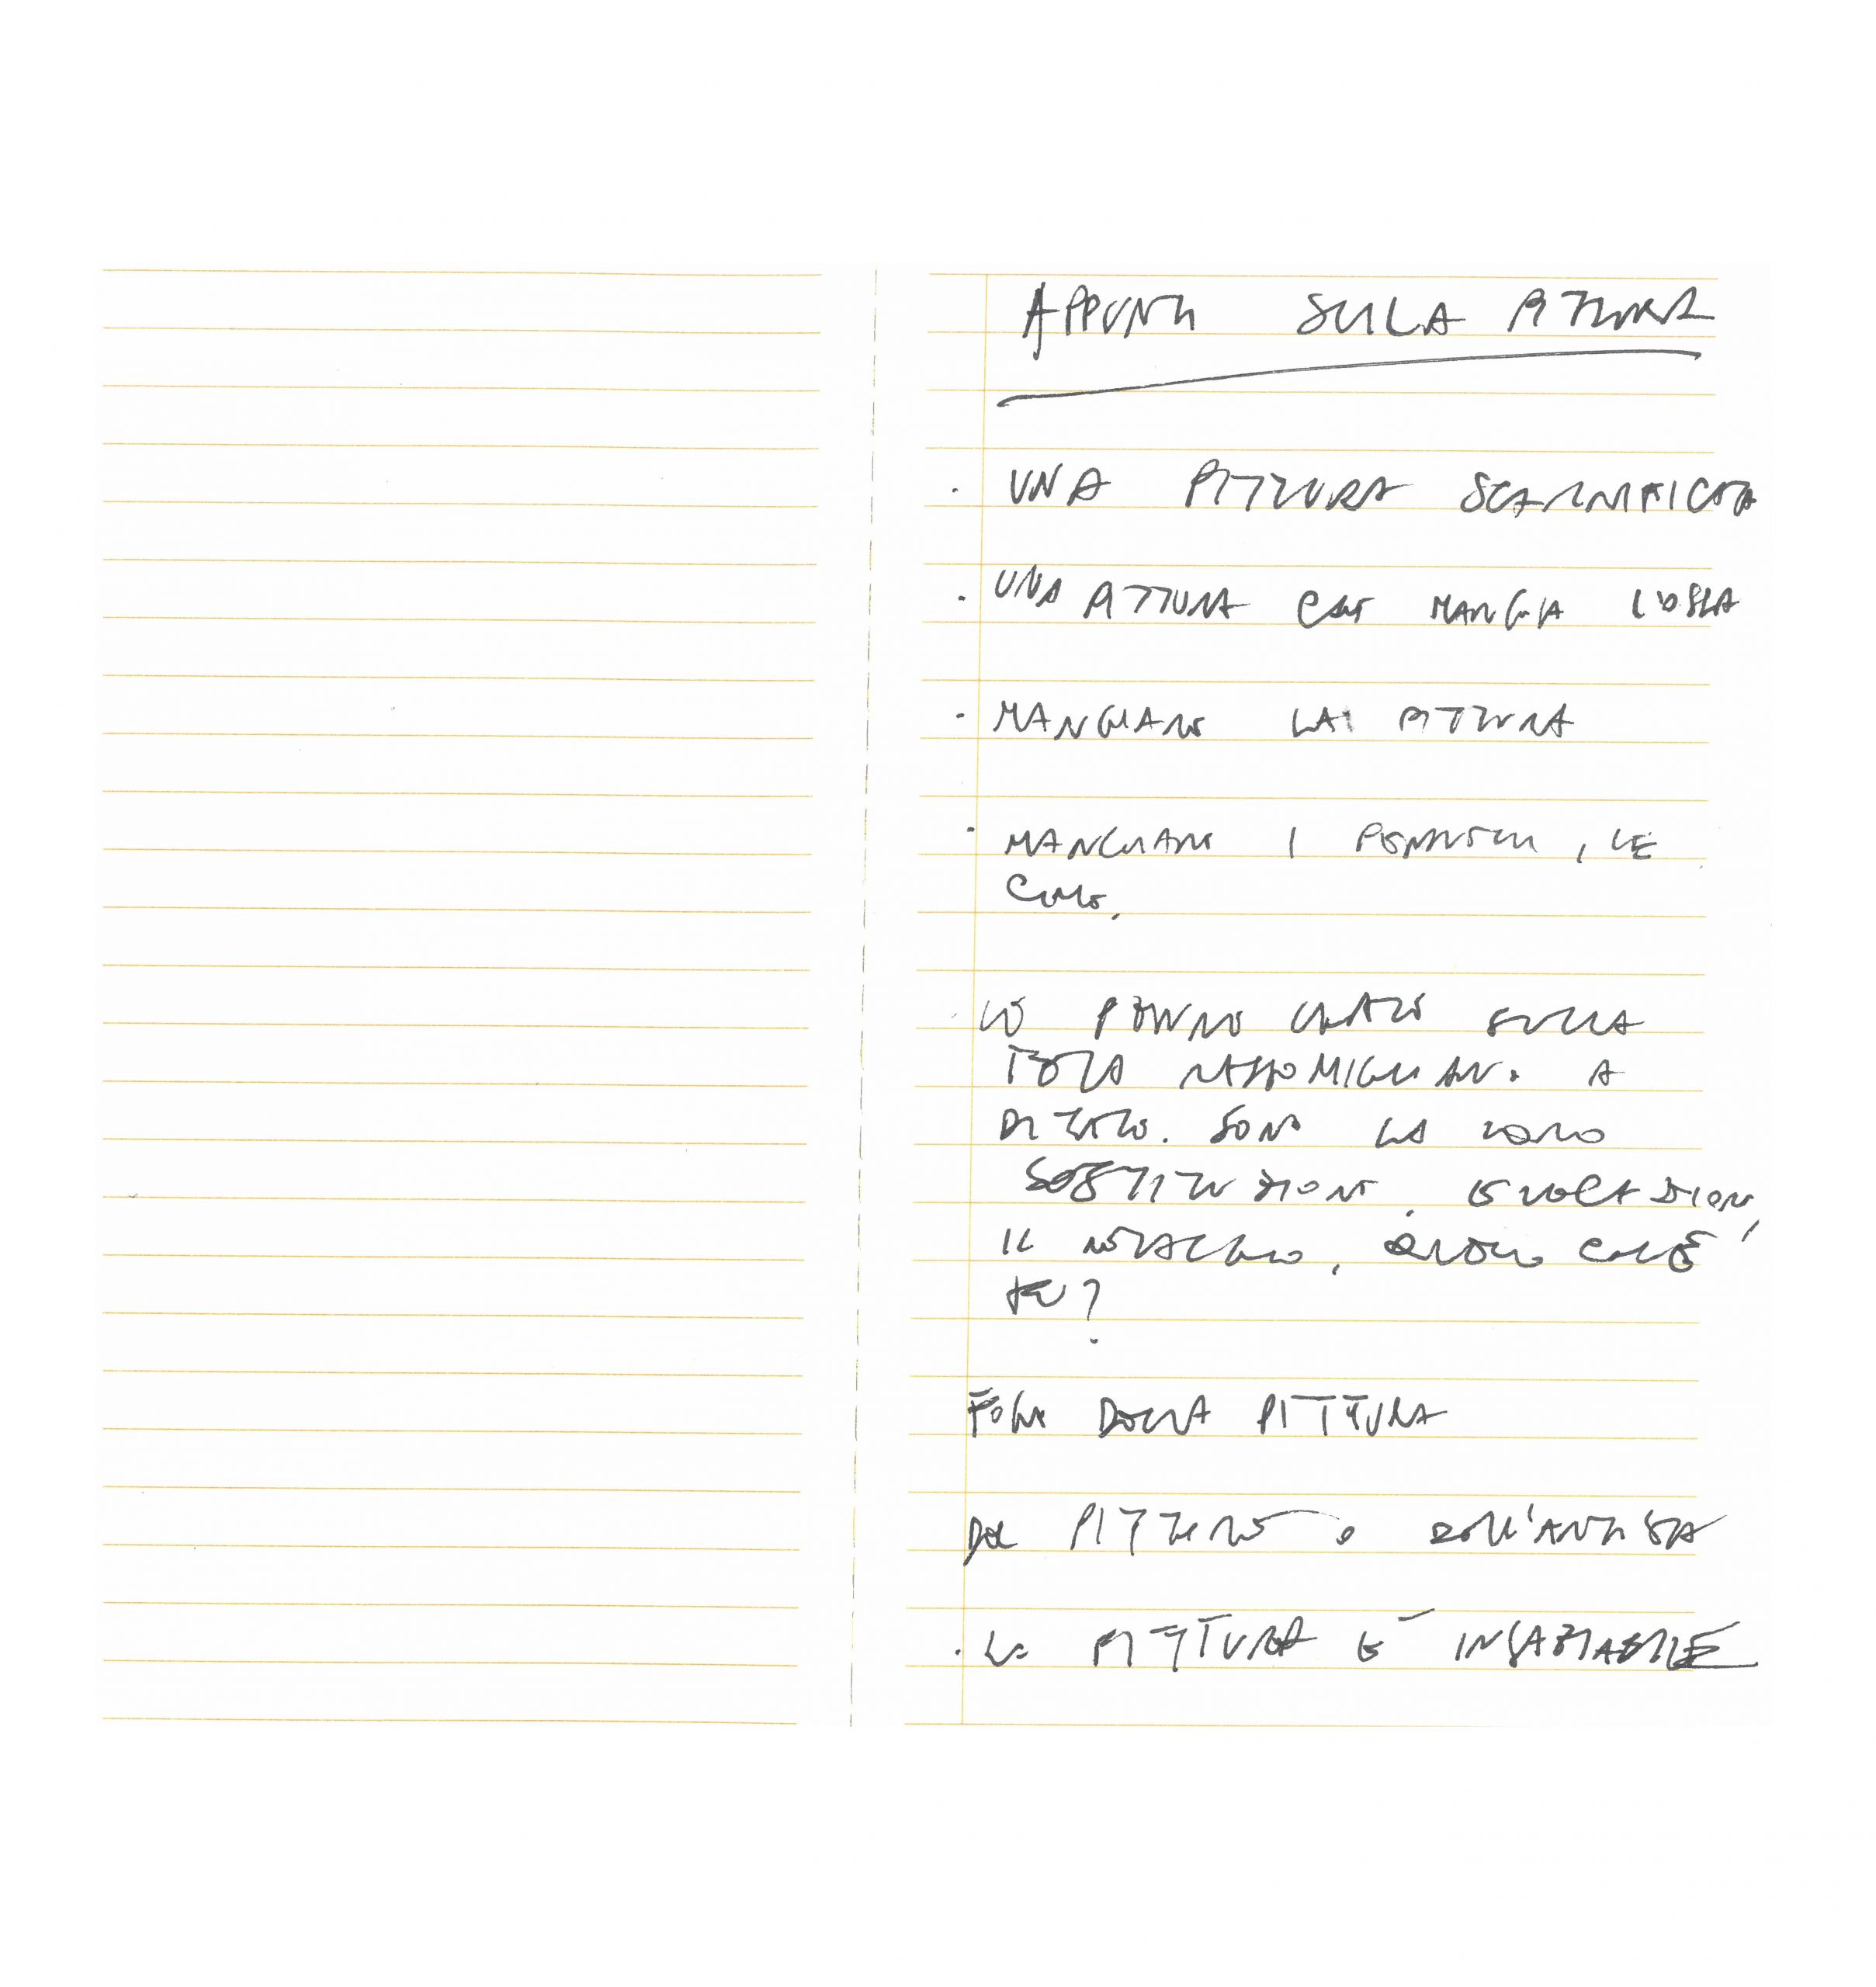 APPUNTI SULLA PITTURA
. UNA PITTURA SCARNIFICATA
. UNA PITTURA CHE MANGIA L'OSSA
. MANGIARE LA PITTURA
. MANGIARE I PENNELLI, LE
. LE SULLA
TELA RASSOMIGLIANO A
DITATE. SONO LA LORO
SOSTITUZIONE, EVOCAZIONE,
IL
TE?
DELLA PITTURA
DEL PITTORE O DELL'ARTISTA
. LA PITTURA È INSAZIABILE